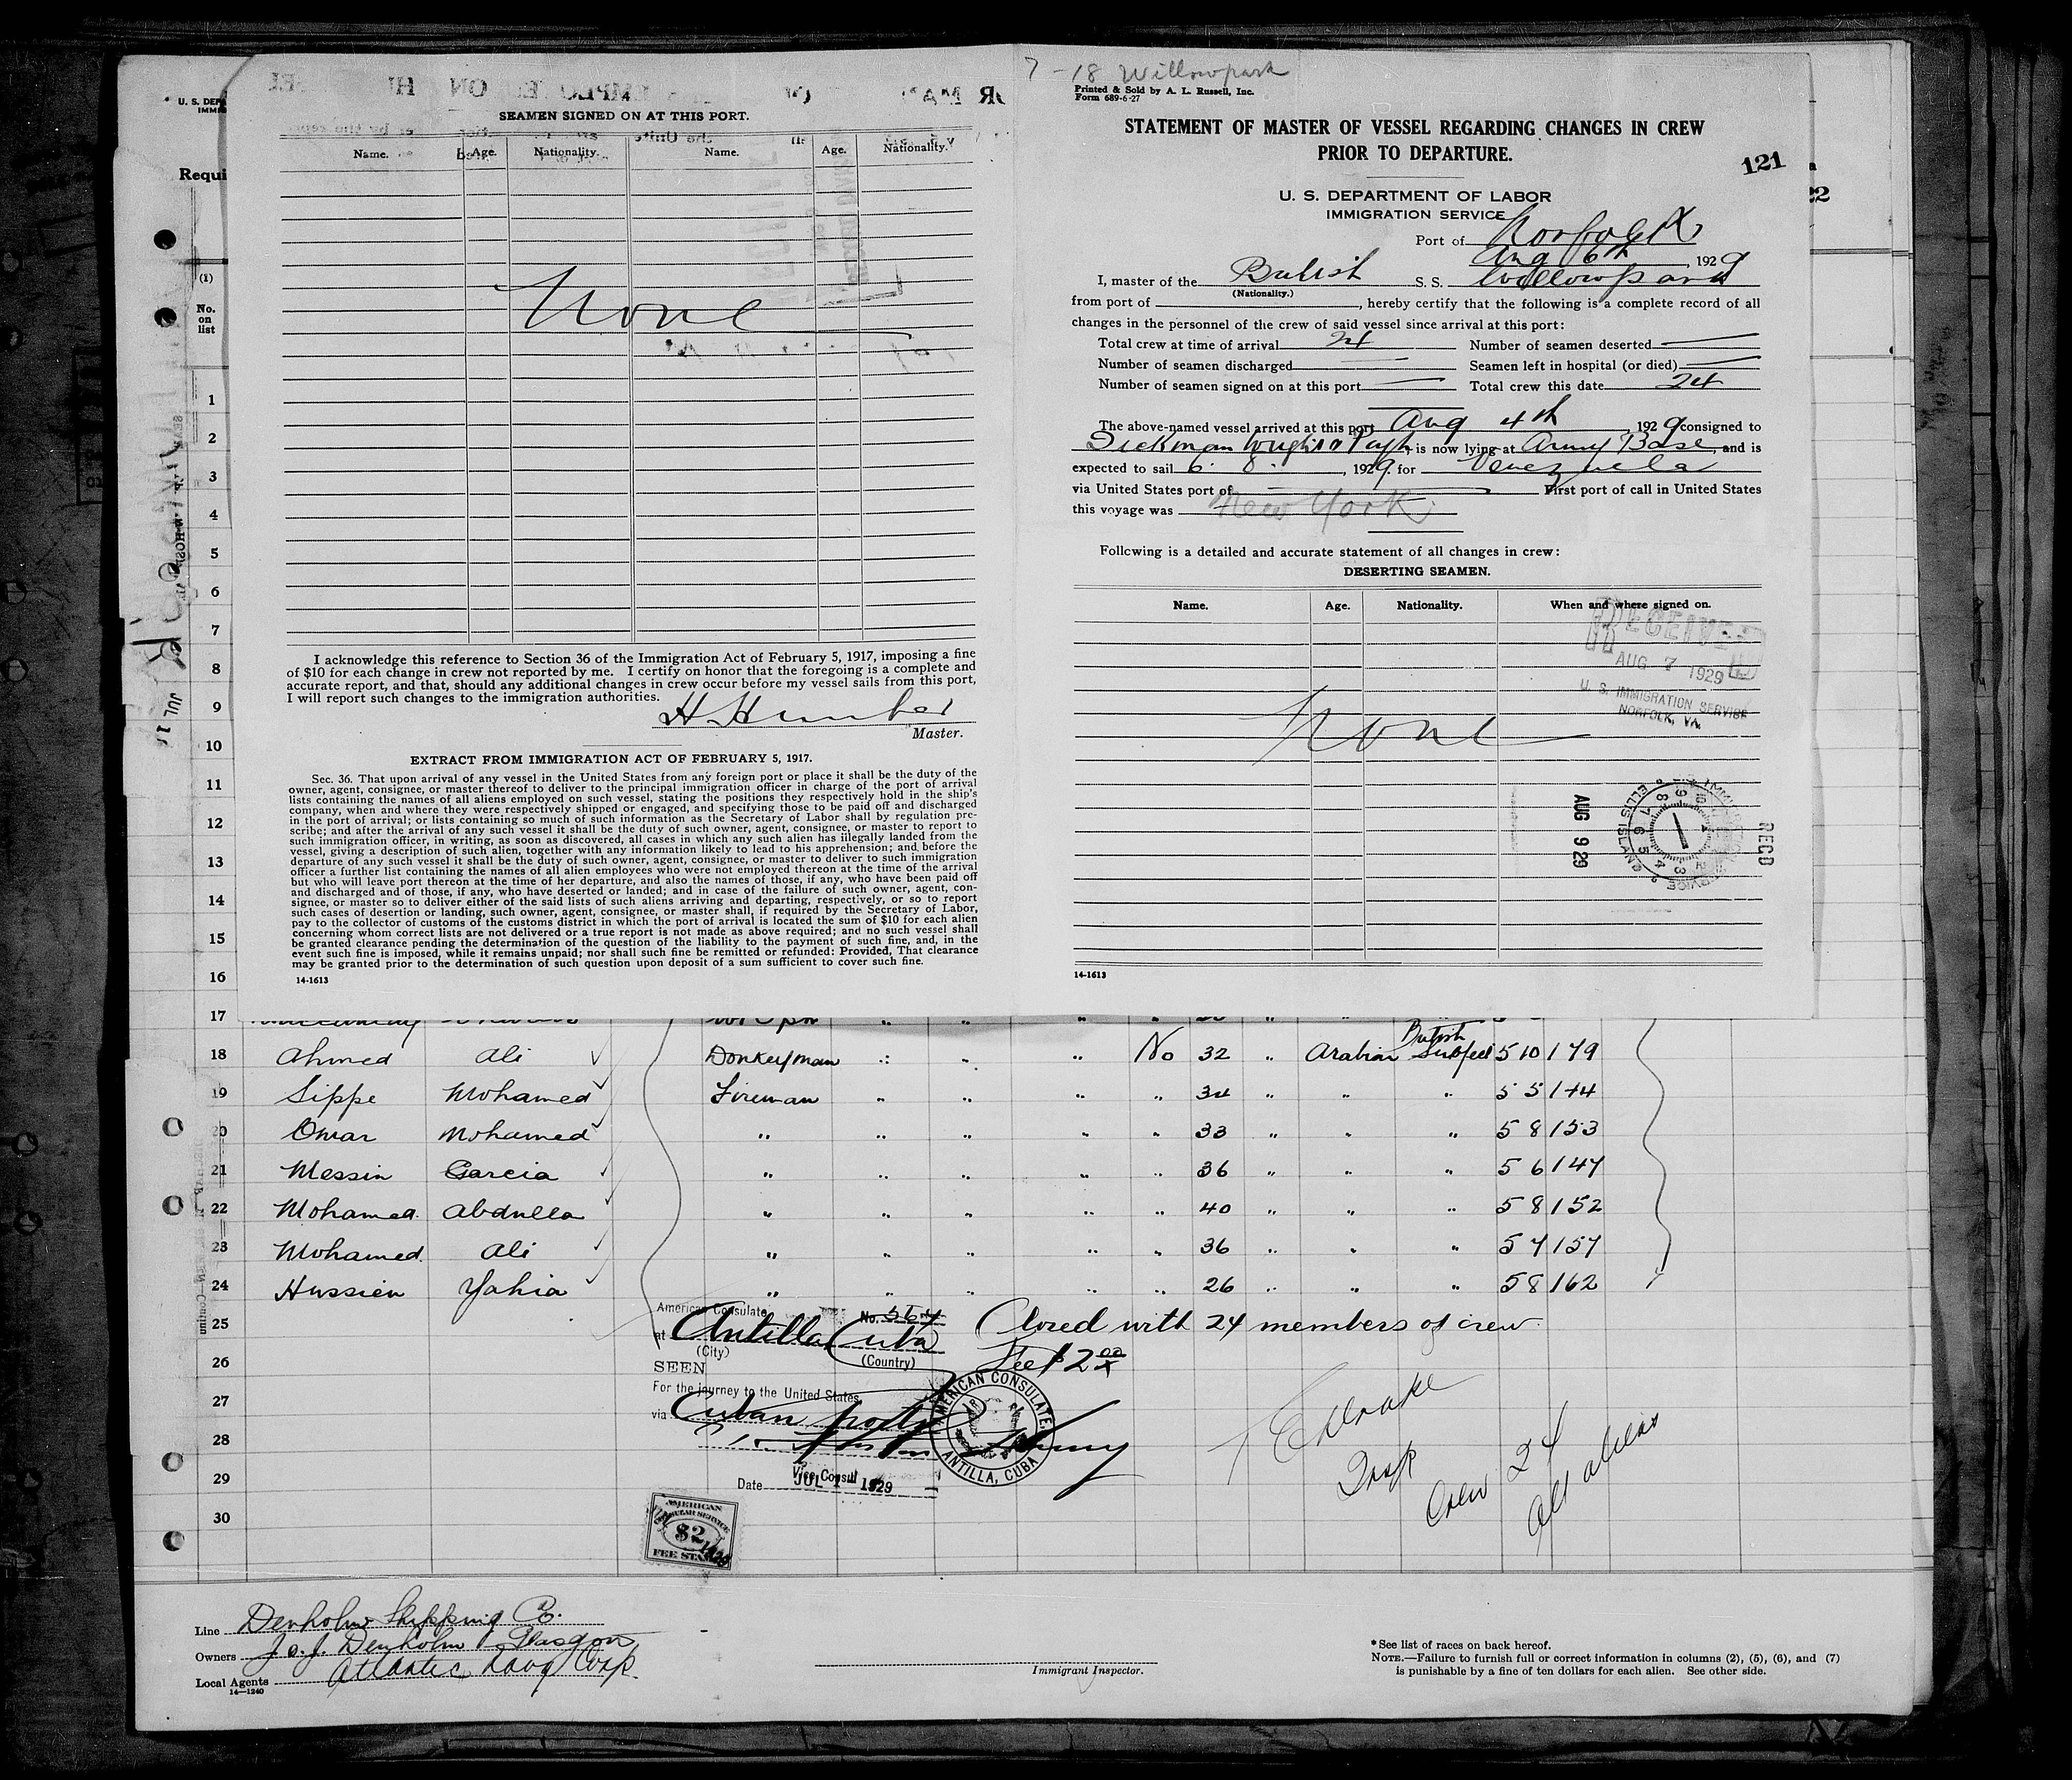 7-18 Willowpark
Printed & Sold by A. L. Russell, Inc.
Form 689-6-27
4
SEAMEN SIGNED ON AT THIS PORT.
Name. Age. Nationality. Name. Age. Nationality.
None
I acknowledge this reference to Section 36 of the Immigration Act of February 5, 1917, imposing a fine
of $10 for each change in crew not reported by me. I certify on honor that the foregoing is a complete and
accurate report, and that, should any additional changes in crew occur before my vessel sails from this port,
I will report such changes to the immigration authorities.
Master.
EXTRACT FROM IMMIGRATION ACT OF FEBRUARY 5, 1917.
Sec. 36. That upon arrival of any vessel in the United States from any foreign port or place it shall be the duty of the
owner, agent, consignee, or master thereof to deliver to the principal immigration officer in charge of the port of arrival
lists containing the names of all aliens employed on such vessel, stating the positions they respectively hold in the ship's
company, when and where they were respectively shipped or engaged, and specifying those to be paid off and discharged
in the port of arrival; or lists containing so much of such information as the Secretary of Labor shall by regulation pre-
scribe; and after the arrival of any such vessel it shall be the duty of such owner, agent, consignee, or master to report to
such immigration officer, in writing, as soon as discovered, all cases in which any such alien has illegally landed from the
vessel, giving a description of such alien, together with any information likely to lead to his apprehension; and before the
departure of any such vessel it shall be the duty of such owner, agent, consignee, or master to deliver to such immigration
officer a further list containing the names of all alien employees who were not employed thereon at the time of the arrival
but who will leave port thereon at the time of her departure, and also the names of those, if any, who have been paid off
and discharged and of those, if any, who have deserted or landed; and in case of the failure of such owner, agent, con-
signee, or master so to deliver either of the said lists of such aliens arriving and departing, respectively, or so to report
such cases of desertion or landing, such owner, agent, consignee, or master shall, if required by the Secretary of Labor,
pay to the collector of customs of the customs district in which the port of arrival is located the sum of $10 for each alien
concerning whom correct lists are not delivered or a true report is not made as above required; and no such vessel shall
be granted clearance pending the determination of the question of the liability to the payment of such fine, and, in the
event such fine is imposed, while it remains unpaid; nor shall such fine be remitted or refunded: Provided, That clearance
may be granted prior to the determination of such question upon deposit of a sum sufficient to cover such fine.
14-1613
STATEMENT OF MASTER OF VESSEL REGARDING CHANGES IN CREW
PRIOR TO DEPARTURE.
121
U. S. DEPARTMENT OF LABOR
IMMIGRATION SERVICE
Port of Norfolk
Aug 6th, 1929
I, master of the British S. S. Willowpark
(Nationality.)
from port of , hereby certify that the following is a complete record of all
changes in the personnel of the crew of said vessel since arrival at this port:
Total crew at time of arrival 24 Number of seamen deserted —
Number of seamen discharged — Seamen left in hospital (or died) —
Number of seamen signed on at this port — Total crew this date 24
The above-named vessel arrived at this port Aug 4th 1929 consigned to
Dickman Wright & Pugh, is now lying at Army Base, and is
expected to sail 6. 8., 1929. for Venezuela
via United States port of — First port of call in United States
this voyage was New York
Following is a detailed and accurate statement of all changes in crew:
DESERTING SEAMEN.
Name. Age. Nationality. When and where signed on.
RECEIVED
AUG 7 1929
U. S. IMMIGRATION SERVICE
NORFOLK, VA.
None
RECD
AUG 9 29
ELLIS ISLAND
14-1613
U. S. DEPA
IMMIG
Requi
(1)
No.
on
list
1
2
3
4
5
6
7
8
9
10
11
12
13
14
15
16
17
18 Ahmed Ali Donkeyman " " " No 32 " Arabian British Subject 5 10 179
19 Sippe Mohamed Fireman " " " " 34 " " " 5 5 144
20 Omar Mohamed " " " " " 33 " " " 5 8 153
21 Messin Garcia " " " " " 36 " " " 5 6 147
22 Mohamed. Abdulla " " " " " 40 " " " 5 8 152
23 Mohamed. Ali " " " " " 36 " " " 5 7 157
24 Hussien Yahia " " " " " 26 " " " 5 8 162
25
26
27
28
29
30
American Consulate No. 564
at Antilla Cuba
(City) (Country)
SEEN
For the journey to the United States
via Cuban ports
Vice Consul
Date JUL 1 1929
AMERICAN CONSULATE
ANTILLA, CUBA
Closed with 24 members of crew.
Fee $2.00
AMERICAN
CONSULAR SERVICE
$2
FEE STAMP
Insp
Crew 24
all aliens
Line Denholm Shipping Co.
Owners J. & J. Denholm Glasgow
Local Agents Atlantic Navg Corp.
14-1240
Immigrant Inspector.
*See list of races on back hereof.
NOTE.—Failure to furnish full or correct information in columns (2), (5), (6), and (7)
is punishable by a fine of ten dollars for each alien. See other side.